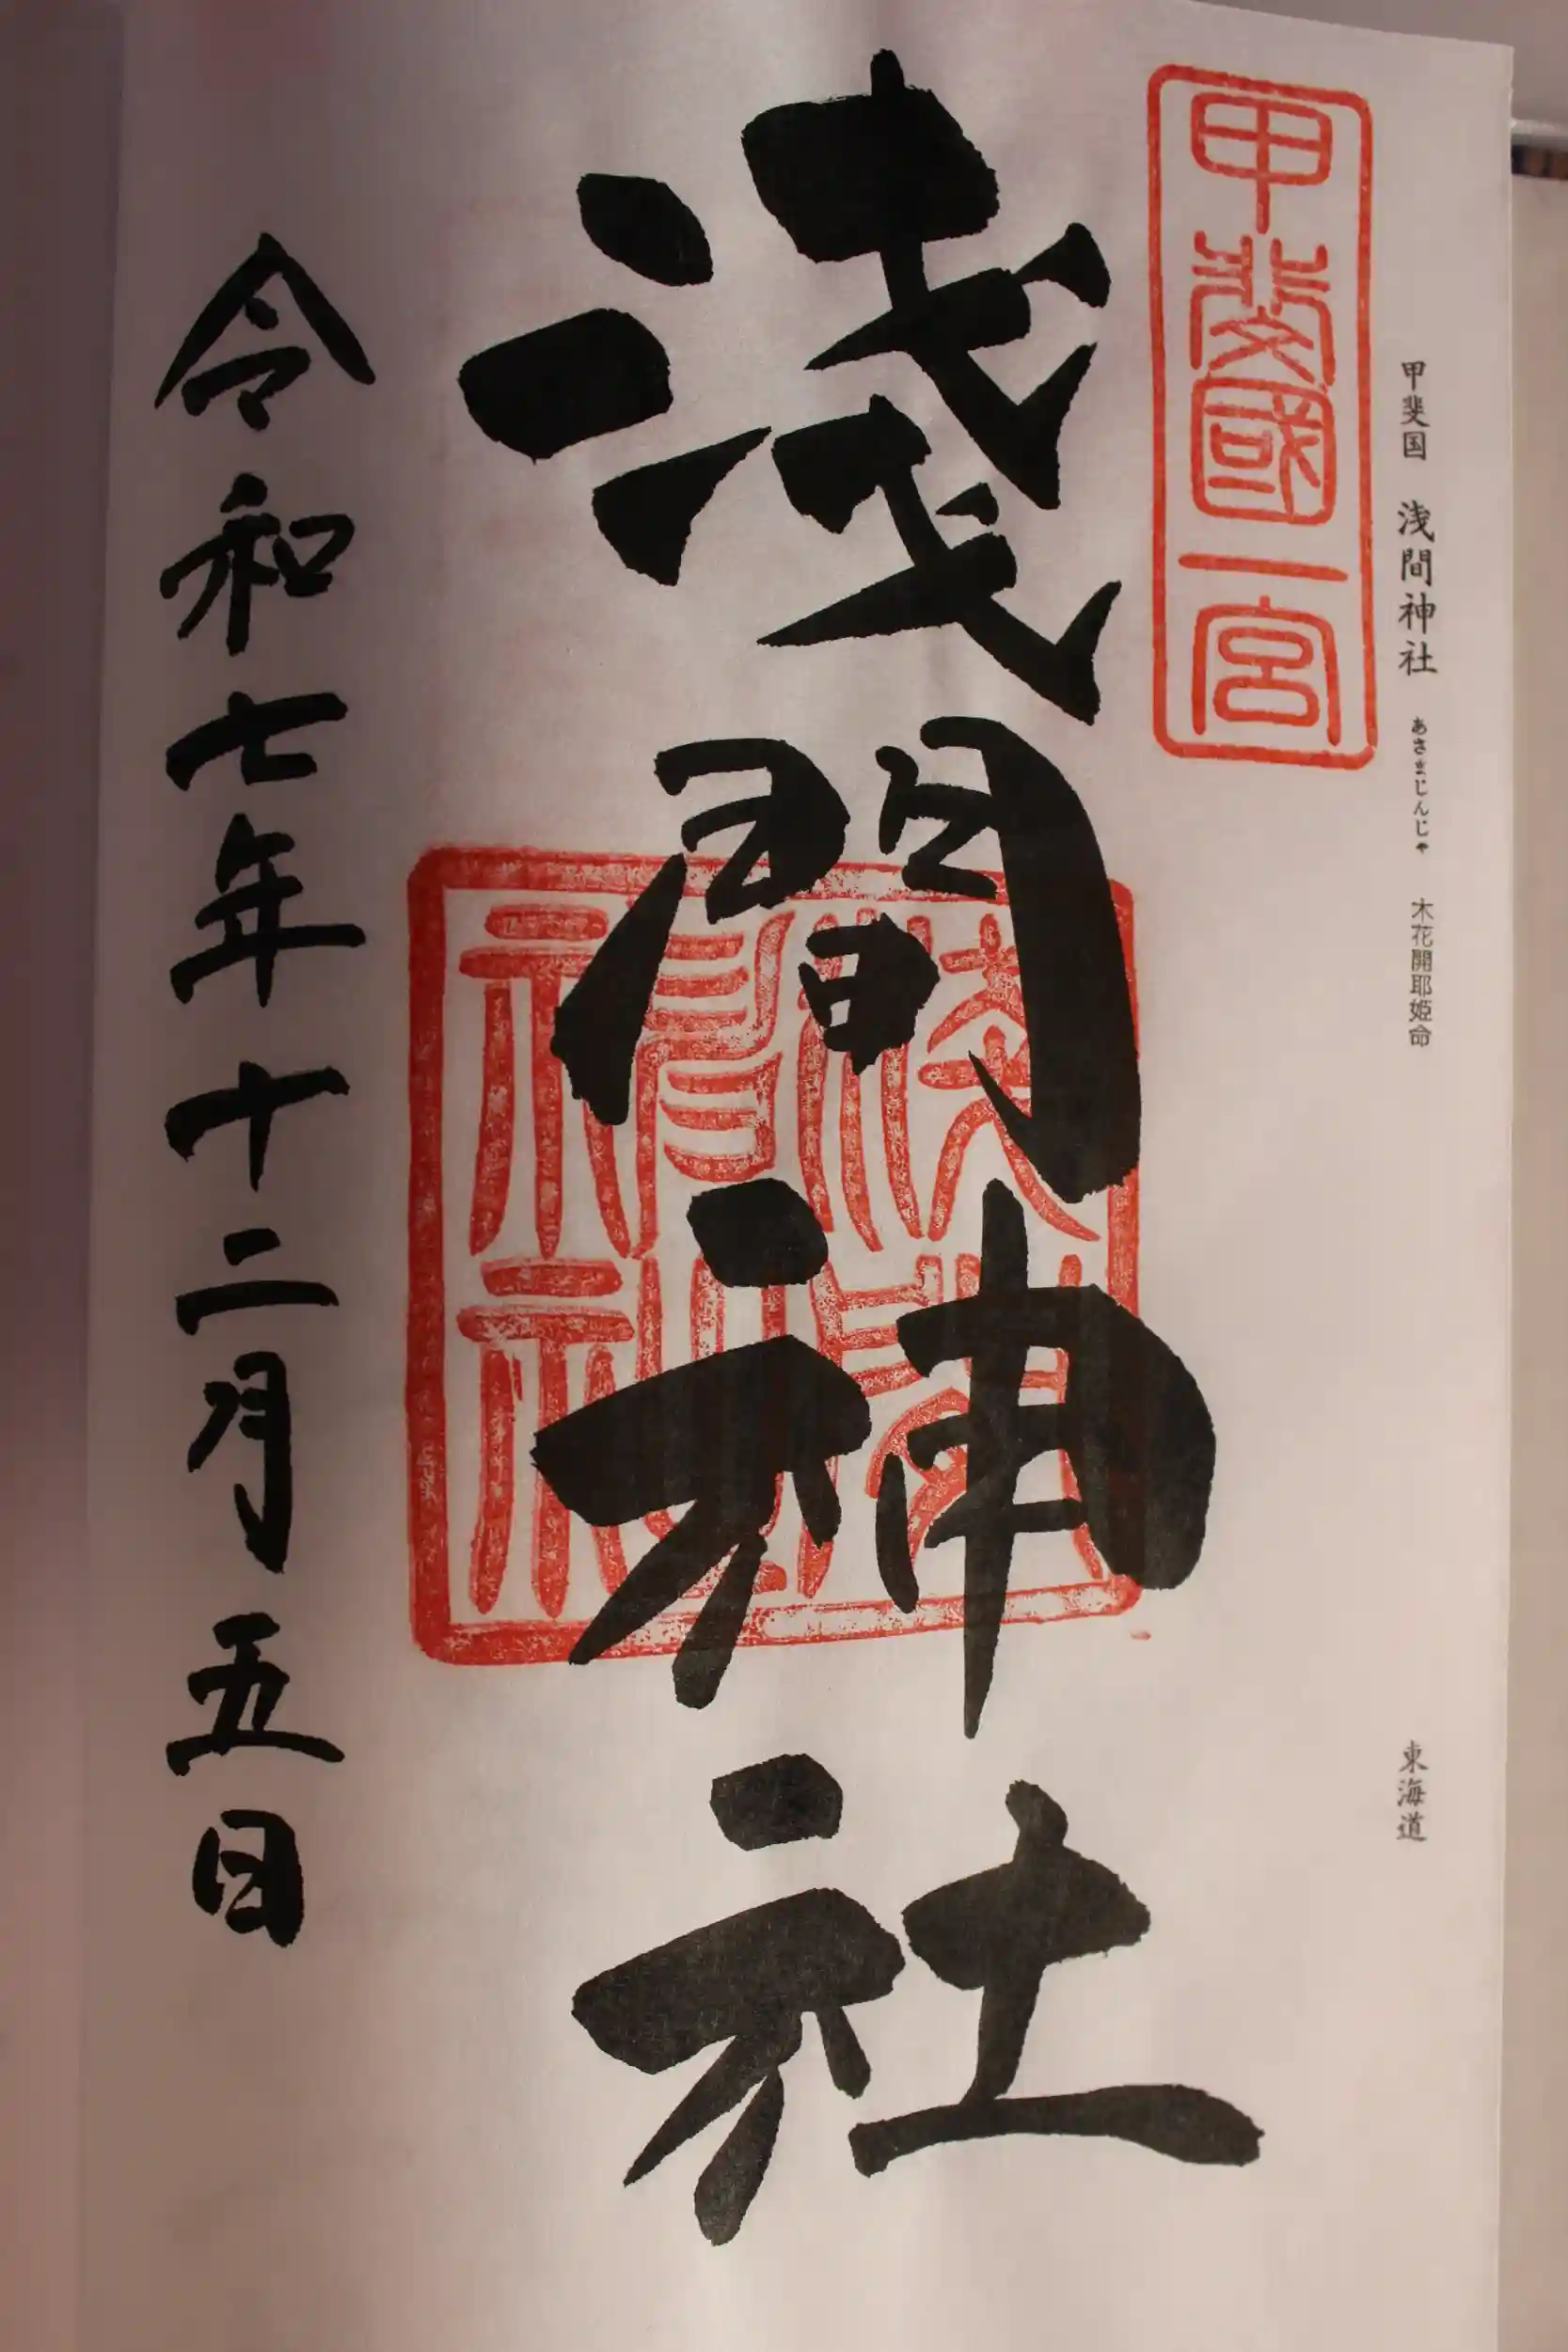 甲斐国 浅間神社 あさまじんじゃ 木花開耶姫命 東海道
甲斐國一宮
淺間神社
淺間神社
令和七年十二月五日